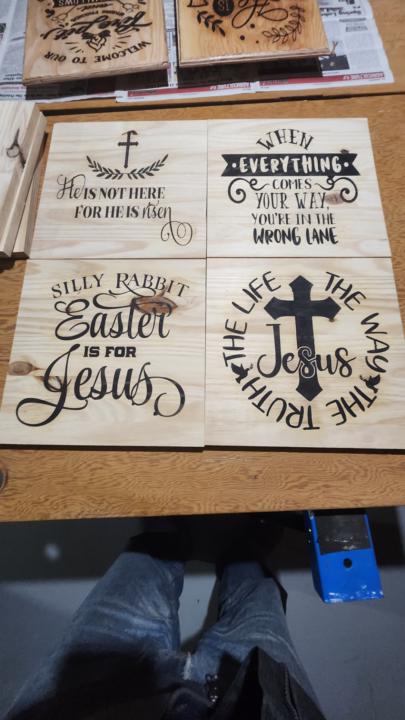 WELCOME TO OUR
He IS NOT HERE
FOR HE IS risen
WHEN
EVERYTHING
COMES
YOUR WAY,
YOU'RE IN THE
WRONG LANE
SILLY RABBIT
Easter
IS FOR
Jesus
THE WAY
THE TRUTH
THE LIFE
Jesus